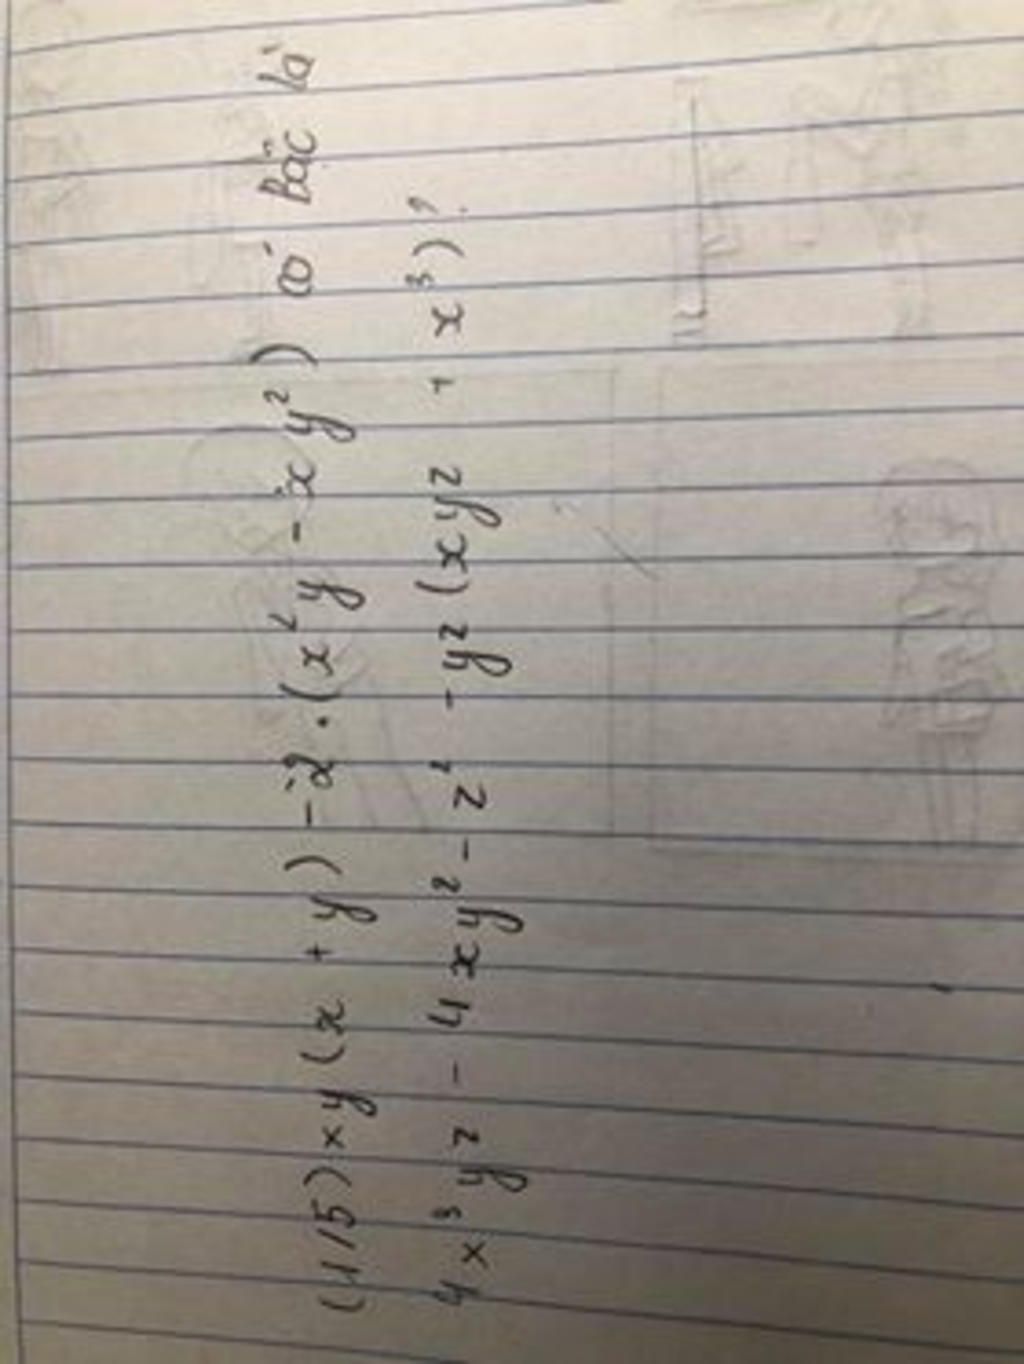 (1/5)xy(x + y) - 2.(x²y - xy²) có bậc là
4x³yz - 4xy² - z² - yz(xyz + x³)?